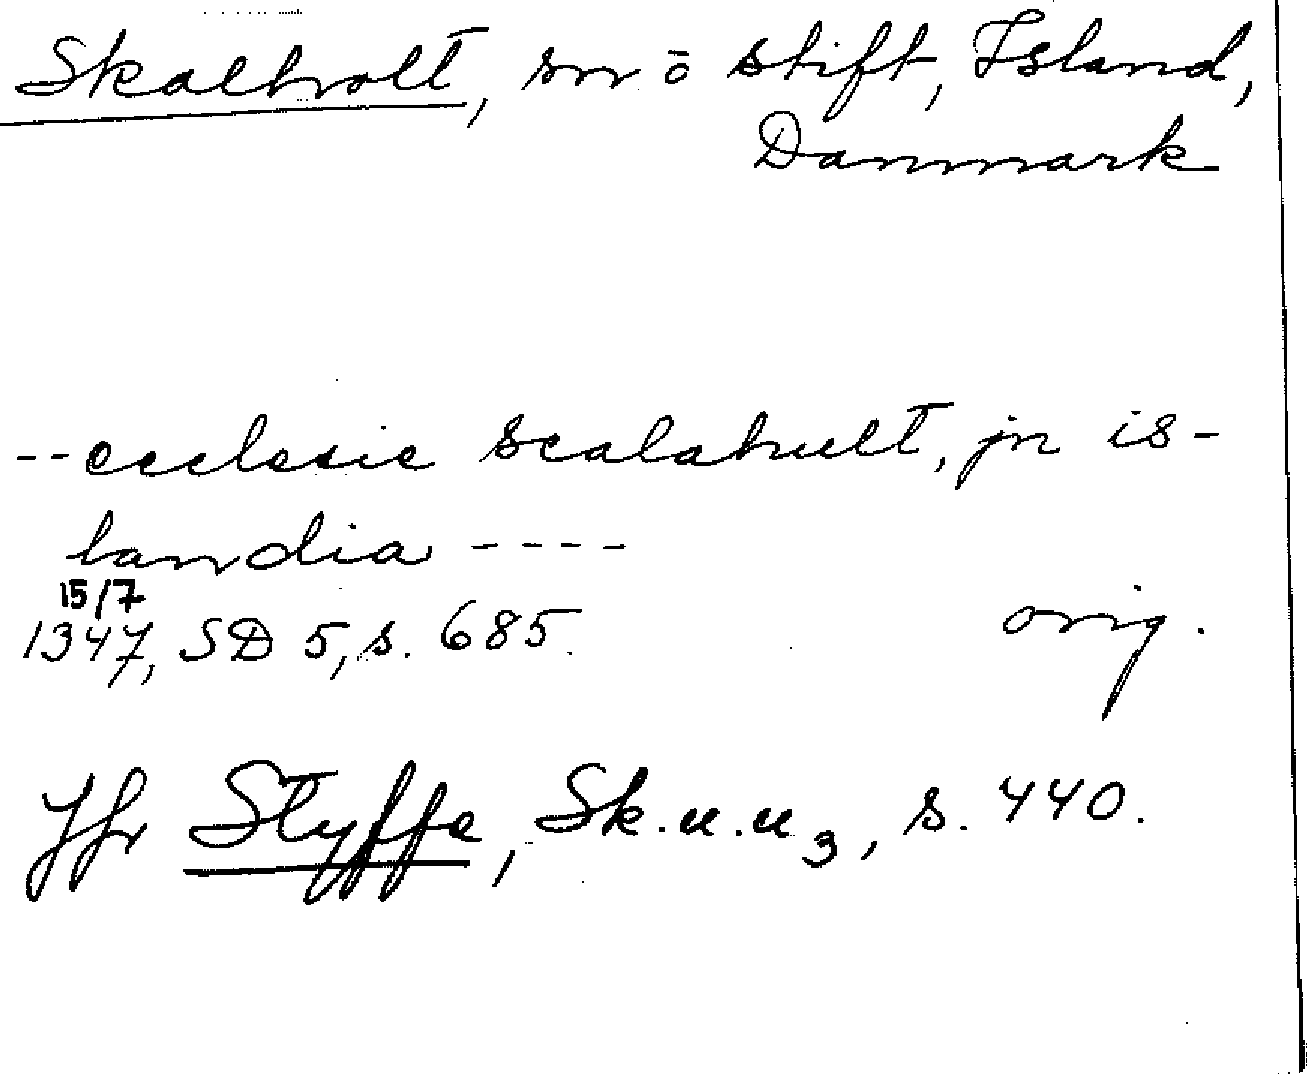 Skalholt, sn ō stift, Island,
Danmark
--ecclesie scalahult, jn is-
landia ----
15/7
1347, SD 5, s. 685.
orig.
Jfr Styffe, Sk.u.u3, s. 440.